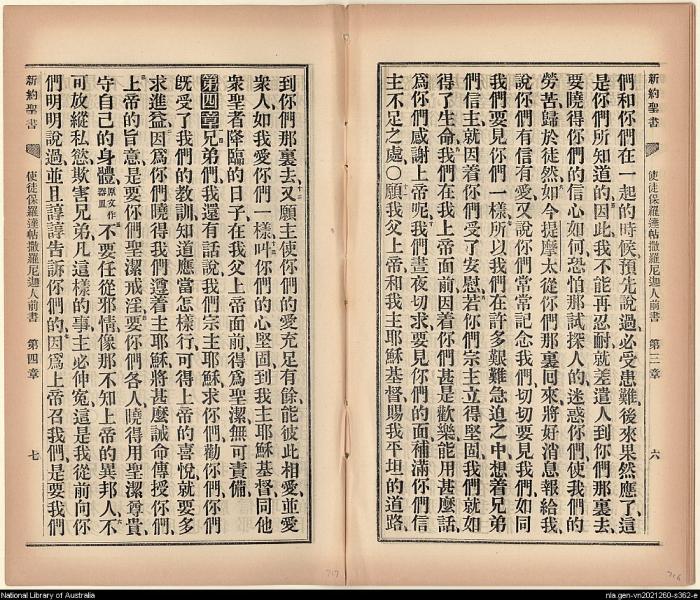 新約聖書 使徒保羅達帖撒羅尼迦人前書 第三章 六
們和你們在一起的時候、預先說過、必受患難、後來果然應了、這
是你們所知道的、因此我不能再忍耐、就差遣人到你們那裏去、
要曉得你們的信心如何、恐怕那試探人的、迷惑你們、使我們的
勞苦歸於徒然、如今提摩太從你們那裏回來、將好消息報給我、
說你們有信有愛、又說你們常常記念我們、切切要見我們、如同
我們要見你們一樣、所以我們在許多艱難急迫之中、想着兄弟
們信主、就因着你們受了安慰、若你們宗主立得堅固、我們就如
得了生命、我們在我上帝面前、因着你們甚是歡樂、能用甚麼話、
爲你們感謝上帝呢、我們晝夜切求要見你們的面、補滿你們信
主不足之處、〇願我父上帝和我主耶穌基督、賜我平坦的道路、
到你們那裏去、又願主使你們的愛充足有餘、能彼此相愛、並愛
衆人、如我愛你們一樣、叫你們的心堅固、到我主耶穌基督、同他
衆聖者降臨的日子、在我父上帝面前、得爲聖潔、無可責備、
第四章 兄弟們、我還有話說、我們宗主耶穌、求你們、勸你們、你們
旣受了我們的教訓、知道應當怎樣行、可得上帝的喜悅、就要多
求進益、因爲你們曉得我們遵着主耶穌、將甚麼誡命傳授你們、
上帝的旨意、是要你們聖潔、戒淫、要你們各人曉得用聖潔尊貴、
守自己的身體、原文作器皿 不要任從邪情、像那不知上帝的異邦人、不
可放縱私慾、欺害兄弟、凡這樣的事、主必伸寃、這是我從前向你
們明明說過、並且諄諄告訴你們的、因爲上帝召我們、是要我們
新約聖書 使徒保羅達帖撒羅尼迦人前書 第四章 七
717
716
National Library of Australia
nla.gen-vn2021260-s362-e